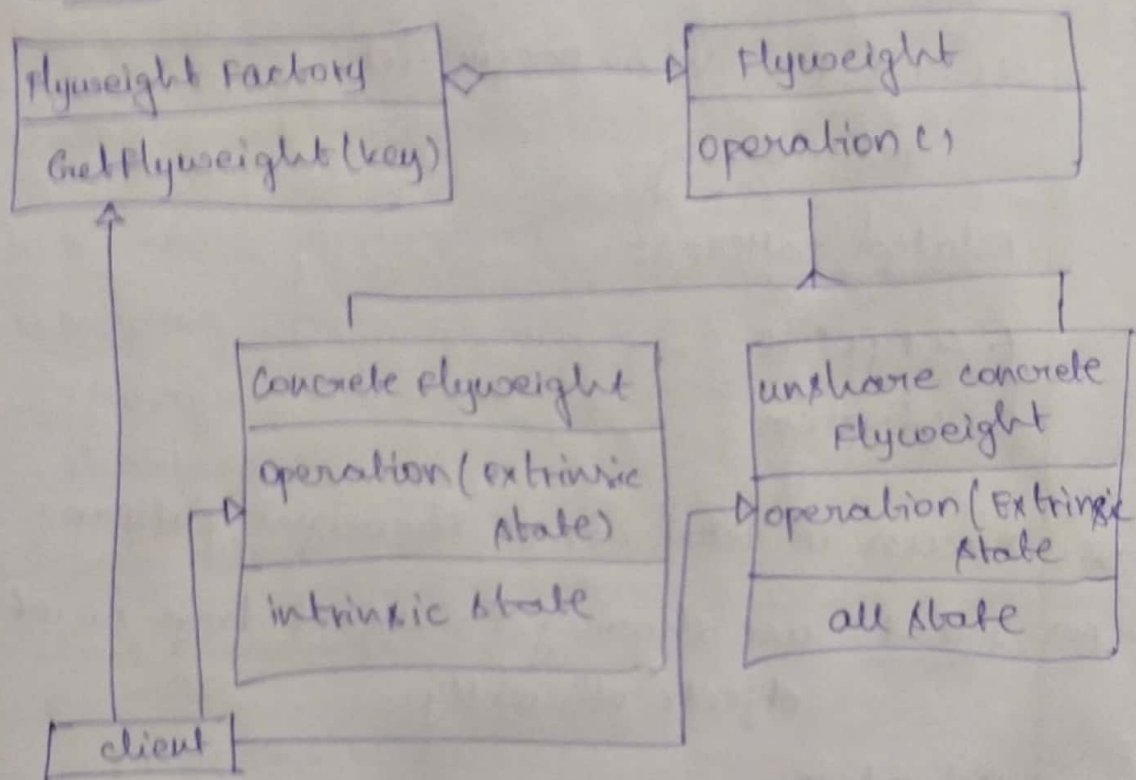 Flyweight Factory
GetFlyweight(key)
Flyweight
operation()
Concrete Flyweight
operation(extrinsic
state)
intrinsic state
unshare concrete
Flyweight
operation(Extrinsic
state
all state
client